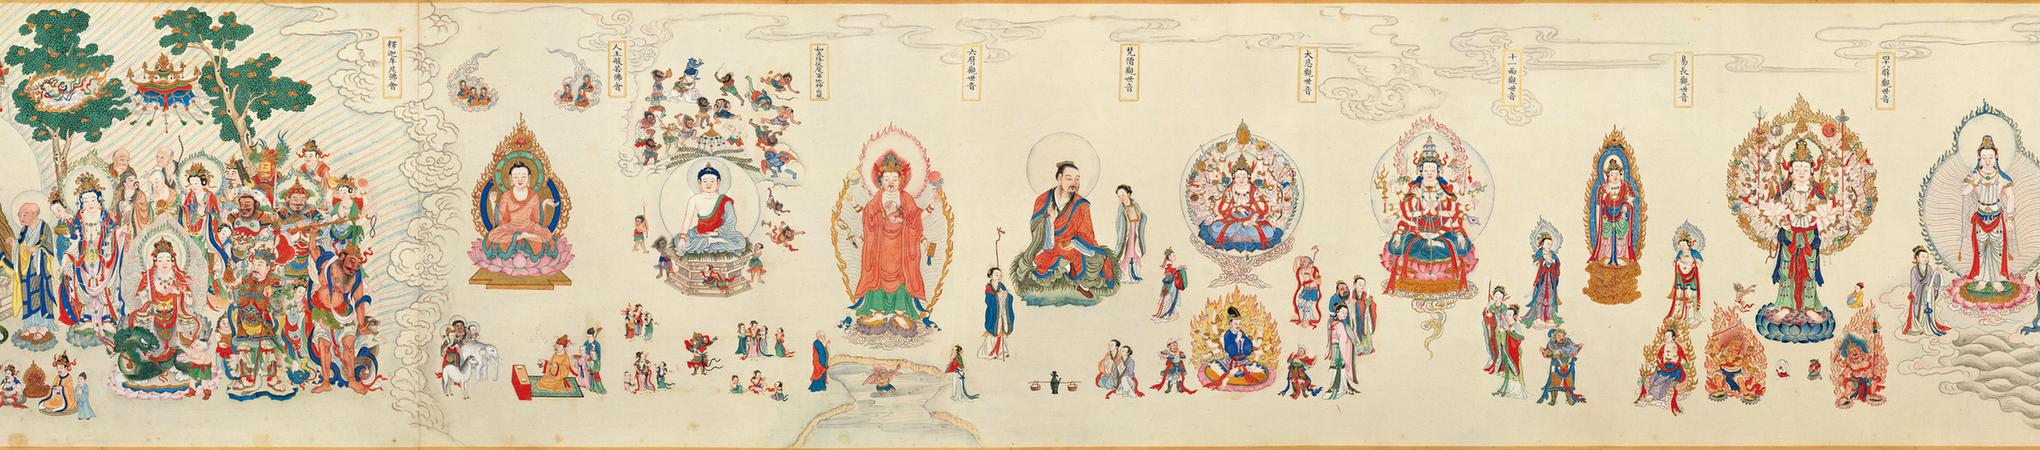 八臂觀世音
易長觀世音
十一面觀世音
大悲觀世音
梵僧觀世音
六臂觀世音
人主般若佛會
釋迦牟尼佛會